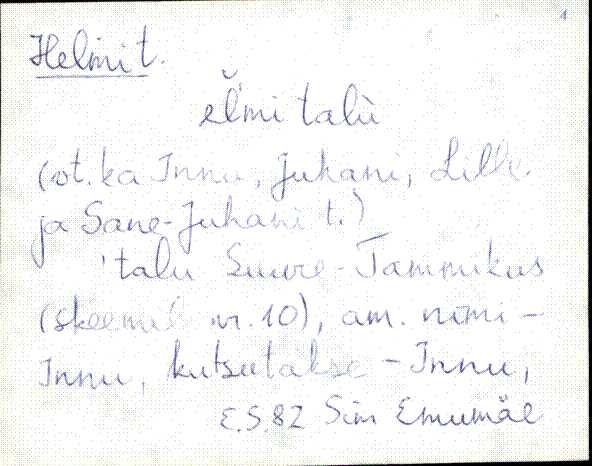 1
Helmi t.
eĽmi talù
(vt. ka Innu, Juhani, Lille
ja Sane-Juhani t.)
'talu Suure-Tammikus
(skeemil nr. 10), am. nimi -
Innu, kutsutakse - Innu,
E.S. 82 Sim Emumäe